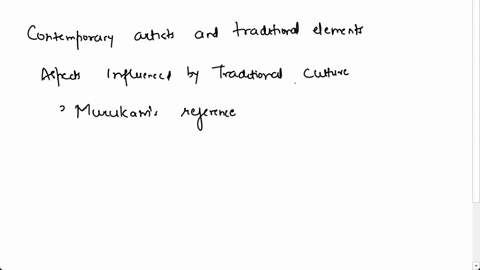 Contemporary artists and traditional elements
Aspects Influenced by Traditional Culture
> Murukami's reference